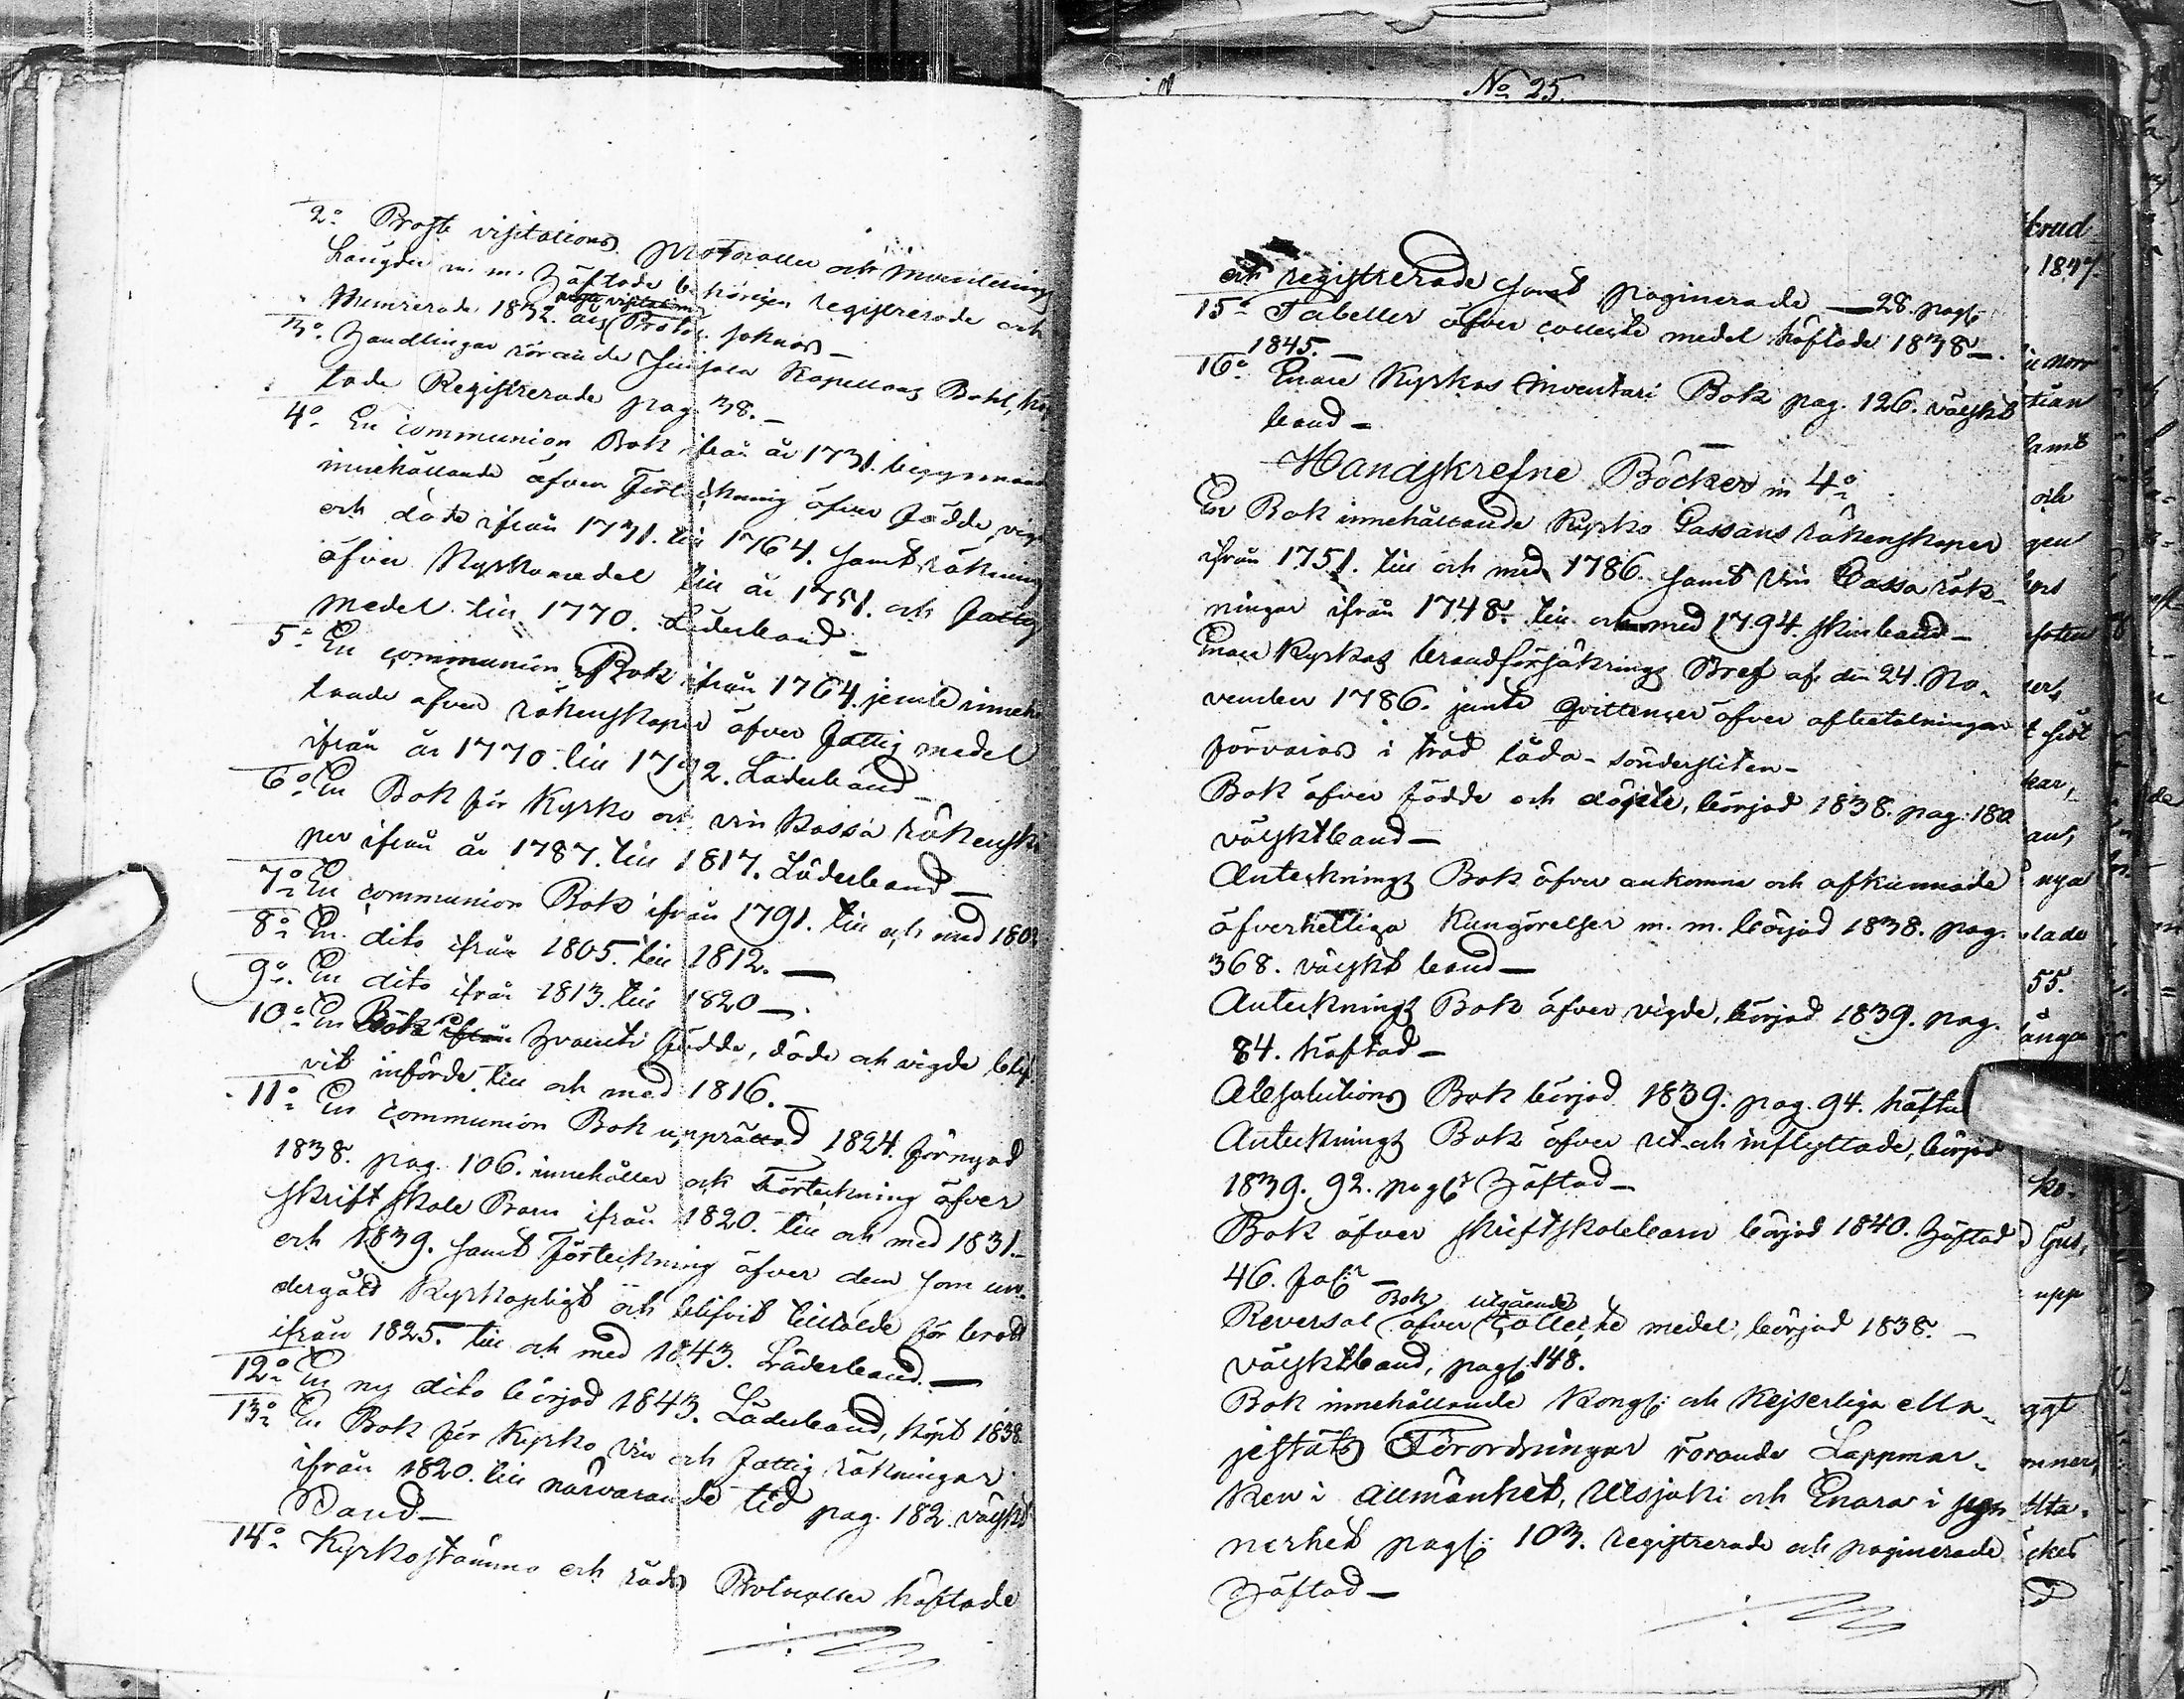 2o Prosts visitations Protocoller och Inventerings
Längder m. m. Häftade behörigen registrerade och
Numrerade 1832 års Prosts visitations Protoc. saknas —
3o Handlingar rörande Kapellans Bohl, häf
tade Registrerade pag. 38. —
4o En communion Bok ifrån år 1731. begynnande
innehållande äfven Förteckning öfver födde, vigde
och döde ifrån 1731. till 1764. samt räkning
öfver Kyrkomedel till år 1751. och fattig
medel till 1770. Läderband —
5o En communion Bok ifrån 1764. jemte innehål
lande äfven räkenskaper öfver fattig medel
ifrån år 1770 till 1792. Läderband —
6o En Bok för Kyrko och vin Kassa räkenska
per ifrån år 1787. till 1817. Läderband —
7o En communion Bok ifrån 1791. till och med 180
8o En dito ifrån 1805. till 1812. —
9o En dito ifrån 1813. till 1820 —
10o En Bok ifrån hvaruti födde, döde och vigde blif
vit införde till och med 1816. —
11o En communion Bok upprättad 1824. förnyad
1838. pag. 106. innehåller och Förteckning öfver
skriftskole Barn ifrån 1820. till och med 1831 —
och 1839. samt Förteckning öfver dem som un-
dergått Kyrkoplikt och blifvit tilltalde för brott
ifrån 1825. till och med 1843. Läderband. —
12o En ny dito börjad 1843. Läderband, köpt 1838.
13o En Bok för Kyrko, vin och fattig räkningar
ifrån 1820. till närvarande tid pag. 182. välskt
Band —
14o Kyrkostämmo och råds Protocoller häftade
No 25.
och registrerade samt paginerade — 28. pag.
15o Tabeller öfver collecte medel häftade 1838 —
1845. —
16o Enare Kyrkas Inventari Bok pag. 126. välskt
band —
Handskrefne Böcker in 4o
En Bok innehållande Kyrko Cassans räkenskaper
ifrån 1751. till och med 1786. samt Vin Cassa räk-
ningar ifrån 1748. till och med 1794. skinband —
Enare Kyrkas brandförsäkrings Bref af den 24. No-
vember 1786. jemte qvittenser öfver afbetalningar
förvaras i träd låda - söndersliten —
Bok öfver födde och döpte, börjad 1838. pag. 180
välsktband —
Antecknings Bok öfver ankomna och afkunnade
öfverhetliga Kungörelser m. m. börjad 1838. pag.
368. välskt band —
Antecknings Bok öfver vigde, börjad 1839. pag.
84. häftad —
Absolutions Bok börjad 1839. pag. 94. häftad
Antecknings Bok öfver ut- och inflyttade, börjad
1839. 92. pag. Häftad —
Bok öfver skriftskolebarn börjad 1840. Häftad
46. —
Reversal Bok öfver utgående Collecte medel börjad 1838. —
välsktband, pag. 148.
Bok innehållande Kongl. och Kejserliga Ma-
jestäts Förordningar rörande Lappmar-
ken i allmänhet, Utsjoki och Enare i syn-
nerhet pag. 103. registrerade och paginerade
Häftad —